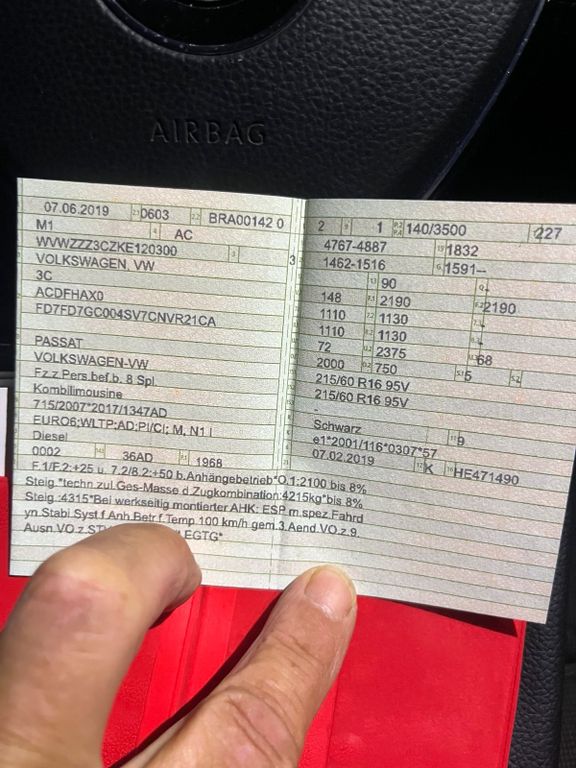 AIRBAG
07.06.2019 2.1 0603 2.2 BRA00142 0
M1 4 AC
WVWZZZ3CZKE120300 3 3
VOLKSWAGEN, VW
3C
ACDFHAX0
FD7FD7GC004SV7CNVR21CA
PASSAT
VOLKSWAGEN-VW
Fz.z.Pers.bef.b. 8 Spl.
Kombilimousine
715/2007*2017/1347AD
EURO6;WLTP;AD;PI/CI; M, N1 I
Diesel
0002 36AD 1968
2 9 1 140/3500 227
4767-4887 1832
1462-1516 1591--
13 90
148 2190 2190
1110 1130 -
1110 1130 -
72 2375 68
2000 750 5
215/60 R16 95V
215/60 R16 95V
-
Schwarz 9
e1*2001/116*0307*57
07.02.2019 K HE471490
F.1/F.2:+25 u. 7.2/8.2:+50 b.Anhängebetrieb*O.1:2100 bis 8%
Steig.*techn.zul.Ges-Masse d.Zugkombination:4215kg*bis 8%
Steig.:4315*Bei werkseitig montierter AHK: ESP m.spez.Fahrd
yn.Stabi.Syst.f.Anh.Betr.f.Temp.100 km/h gem.3.Aend.VO.z.9.
Ausn.VO.z.ST EGTG*